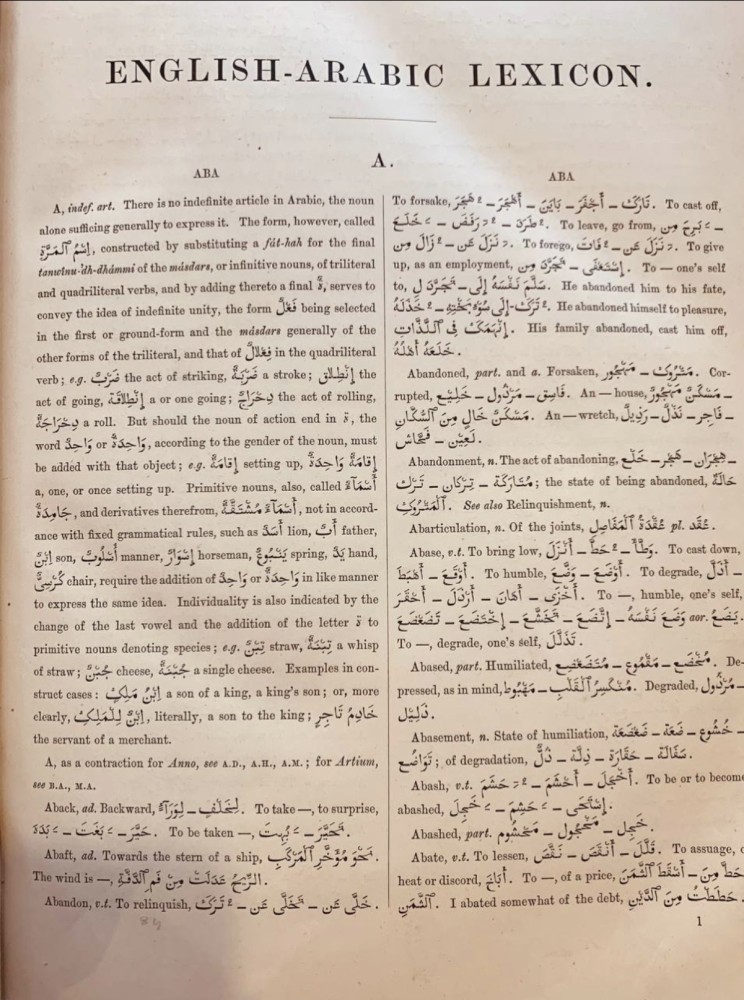 ENGLISH-ARABIC LEXICON.
A.
ABA
A, indef. art. There is no indefinite article in Arabic, the noun
alone sufficing generally to express it. The form, however, called
إِسْمُ ٱلْمَرَّةِ, constructed by substituting a fát-hah for the final
tanwînu-'dh-dhámmi of the másdars, or infinitive nouns, of triliteral
and quadriliteral verbs, and by adding thereto a final ةً, serves to
convey the idea of indefinite unity, the form فَعْلٌ being selected
in the first or ground-form and the másdars generally of the
other forms of the triliteral, and that of فِعْلَالٌ in the quadriliteral
verb; e.g. ضَرْبٌ the act of striking, ضَرْبَةٌ a stroke; إِنْطِلَاقٌ the
act of going, إِنْطِلَاقَةٌ a or one going; دِحْرَاجٌ the act of rolling,
دِحْرَاجَةٌ a roll. But should the noun of action end in ة, the
word وَاحِدٌ or وَاحِدَةٌ, according to the gender of the noun, must
be added with that object; e.g. إِقَامَةٌ setting up, إِقَامَةٌ وَاحِدَةٌ
a, one, or once setting up. Primitive nouns, also, called أَسْمَآءٌ
جَامِدَةٌ, and derivatives therefrom, أَسْمَآءٌ مُشْتَقَّةٌ, not in accord-
ance with fixed grammatical rules, such as أَسَدٌ lion, أَبٌ father,
إِبْنٌ son, أُسْلُوبٌ manner, إِسْوَارٌ horseman, يَنْبُوعٌ spring, يَدٌ hand,
كُرْسِيٌّ chair, require the addition of وَاحِدٌ or وَاحِدَةٌ in like manner
to express the same idea. Individuality is also indicated by the
change of the last vowel and the addition of the letter ة to
primitive nouns denoting species; e.g. تِبْنٌ straw, تِبْنَةٌ a whisp
of straw; جُبْنٌ cheese, جُبْنَةٌ a single cheese. Examples in con-
struct cases: إِبْنُ مَلِكٍ a son of a king, a king's son; or, more
clearly, إِبْنٌ لِلْمَلِكِ, literally, a son to the king; خَادِمُ تَاجِرٍ
the servant of a merchant.
A, as a contraction for Anno, see A.D., A.H., A.M.; for Artium,
see B.A., M.A.
Aback, ad. Backward, لِخَلْفٍ – لِوَرَآءٍ. To take —, to surprise,
حَيَّرَ – بَغَتَ – بَدَهَ. To be taken —, تَحَيَّرَ – بُهِتَ.
Abaft, ad. Towards the stern of a ship, نَحْوَ مُؤَخَّرِ ٱلْمَرْكَبِ.
The wind is —, الرِّيحُ عَدَلَتْ مِنْ فَمِ ٱلدَّفَّةِ.
Abandon, v.t. To relinquish, خَلَّى عَن – تَخَلَّى عَن – تَرَكَ.
ABA
To forsake, تَارَكَ – أَجْفَرَ – بَايَنَ – أَهْجَرَ – هَجَرَ. To cast off,
طَرَدَ – رَفَضَ – خَلَعَ. To leave, go from, بَرِحَ مِن –
نَزَلَ عَن – زَالَ مِن. To forego, نَزَلَ عَن – فَاتَ. To give
up, as an employment, إِسْتَعْفَى – تَجَرَّدَ مِن. To — one's self
to, سَلَّمَ نَفْسَهُ إِلَى – تَجَرَّدَ لِ. He abandoned him to his fate,
تَرَكَهُ إِلَى سُوْءِ بَخْتِهِ – خَذَلَهُ. He abandoned himself to pleasure,
إِنْهَمَكَ فِي ٱللَّذَّاتِ. His family abandoned, cast him off,
خَلَعَهُ أَهْلُهُ.
Abandoned, part. and a. Forsaken, مَتْرُوك – مَهْجُور. Cor-
rupted, فَاسِق – مَرْذُول – خَلِيع. An — house, مَسْكَنٌ مَهْجُورٌ –
مَسْكَنٌ خَالٍ مِنَ ٱلسُّكَّانِ. An — wretch, فَاجِر – نَذْل – رَذِيل –
لَعِين – فَحَّاش.
Abandonment, n. The act of abandoning, هِجْرَان – هَجْر – خَلْع –
مُتَارَكَة – تِرْكَان – تَرْك; the state of being abandoned, حَالَةُ
ٱلْمَتْرُوكِ. See also Relinquishment, n.
Abarticulation, n. Of the joints, عُقْدَةُ ٱلْمَفَاصِلِ pl. عُقَد.
Abase, v.t. To bring low, وَطَّأَ – حَطَّ – أَنْزَلَ. To cast down,
أَوْقَعَ – أَهْبَطَ. To humble, أَوْضَعَ – وَضَّعَ. To degrade, أَذَلَّ –
أَخْزَى – أَهَانَ – أَرْذَلَ – أَحْقَرَ. To —, humble, one's self,
وَضَعَ نَفْسَهُ aor. يَضَعُ – إِتَّضَعَ – تَخَشَّعَ – إِخْتَضَعَ – تَضَعْضَعَ.
To —, degrade, one's self, تَذَلَّلَ.
Abased, part. Humiliated, مُخْضَع – مَقْمُوع – مُتَضَعْضِع. De-
pressed, as in mind, مُنْكَسِرُ ٱلْقَلْبِ – مَهْبُوط. Degraded, مَرْذُول –
ذَلِيل.
Abasement, n. State of humiliation, خُشُوع – ضَعَة – ضَعْضَعَة –
تَوَاضُع; of degradation, سَفَالَة – حَقَارَة – ذِلَّة – ذُلّ.
Abash, v.t. أَخْجَلَ – أَحْشَمَ – حَشَمَ. To be or to become
abashed, إِسْتَحَى – حَشِمَ – خَجِلَ.
Abashed, part. خَجِل – مَخْجُول – مَحْشُوم.
Abate, v.t. To lessen, قَلَّلَ – أَنْقَصَ – نَقَّصَ. To assuage,
heat or discord, أَبَاخَ. To —, of a price, حَطَّ مِنَ – أَسْقَطَ ٱلثَّمَنَ
ٱلثَّمَنِ. I abated somewhat of the debt, حَطَطْتُ مِنَ ٱلدَّيْنِ.
1